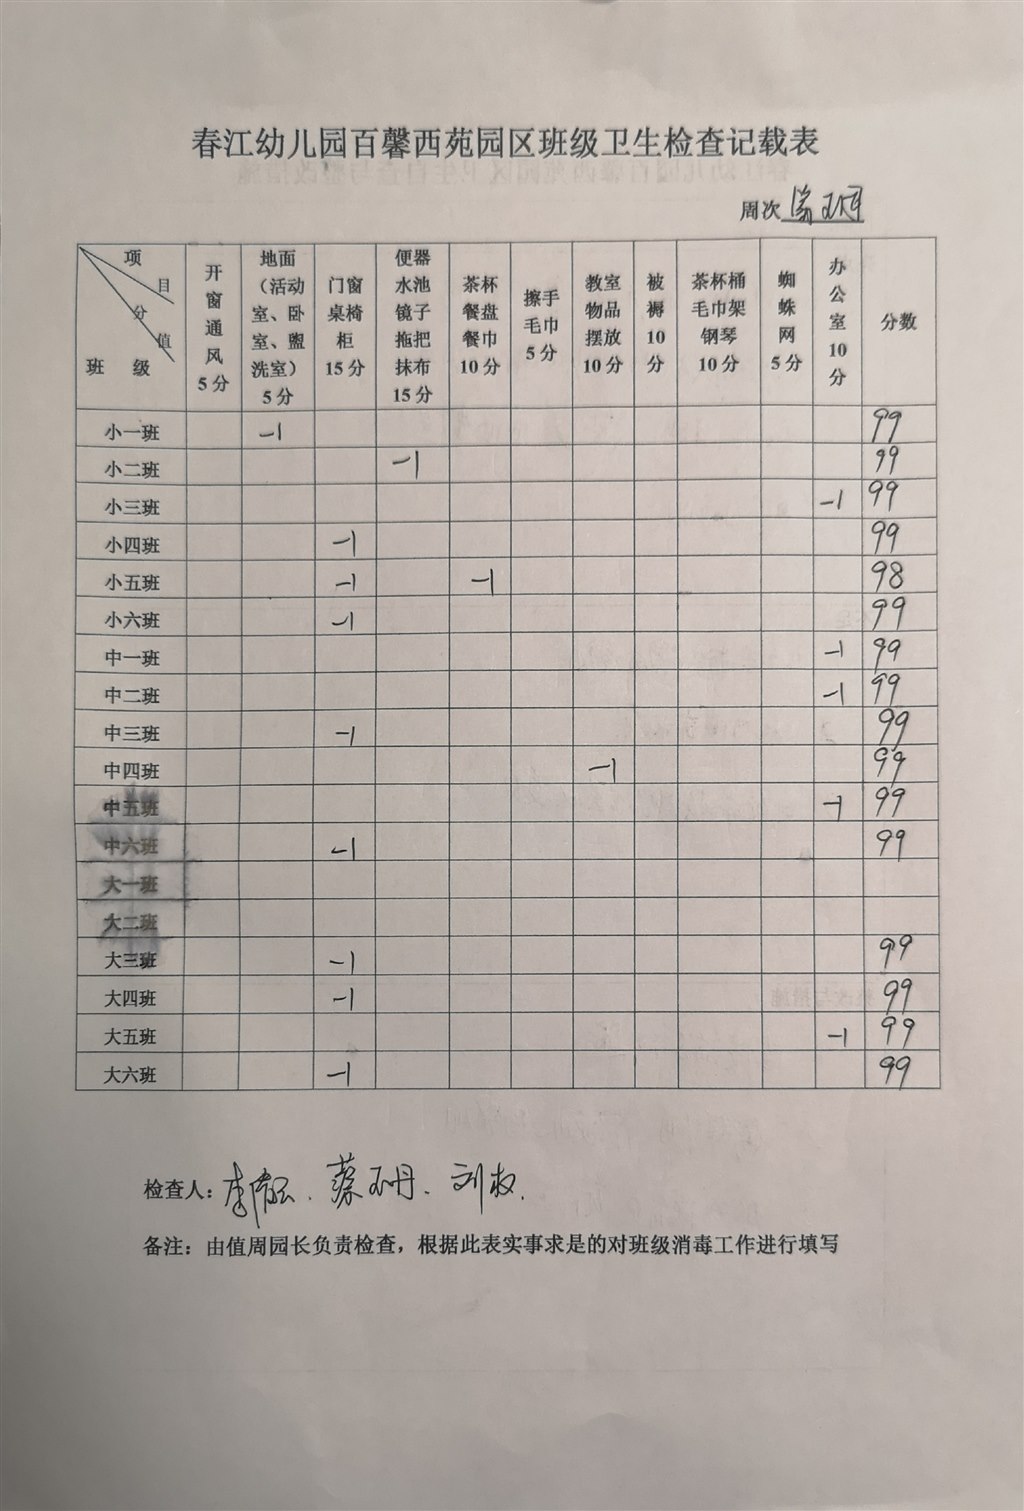 春江幼儿园百馨西苑园区班级卫生检查记载表
周次
项目 分值 班级 开窗通风5分 地面（活动室、卧室、盥洗室）5分 门窗桌椅柜15分 便器水池镜子拖把抹布15分 茶杯餐盘餐巾10分 擦手毛巾5分 教室物品摆放10分 被褥10分 茶杯桶毛巾架钢琴10分 蜘蛛网5分 办公室10分 分数
小一班 -1 99
小二班 -1 99
小三班 -1 99
小四班 -1 99
小五班 -1 -1 98
小六班 -1 99
中一班 -1 99
中二班 -1 99
中三班 -1 99
中四班 -1 99
中五班 -1 99
中六班 -1 99
大一班
大二班
大三班 -1 99
大四班 -1 99
大五班 -1 99
大六班 -1 99
检查人：
备注：由值周园长负责检查，根据此表实事求是的对班级消毒工作进行填写